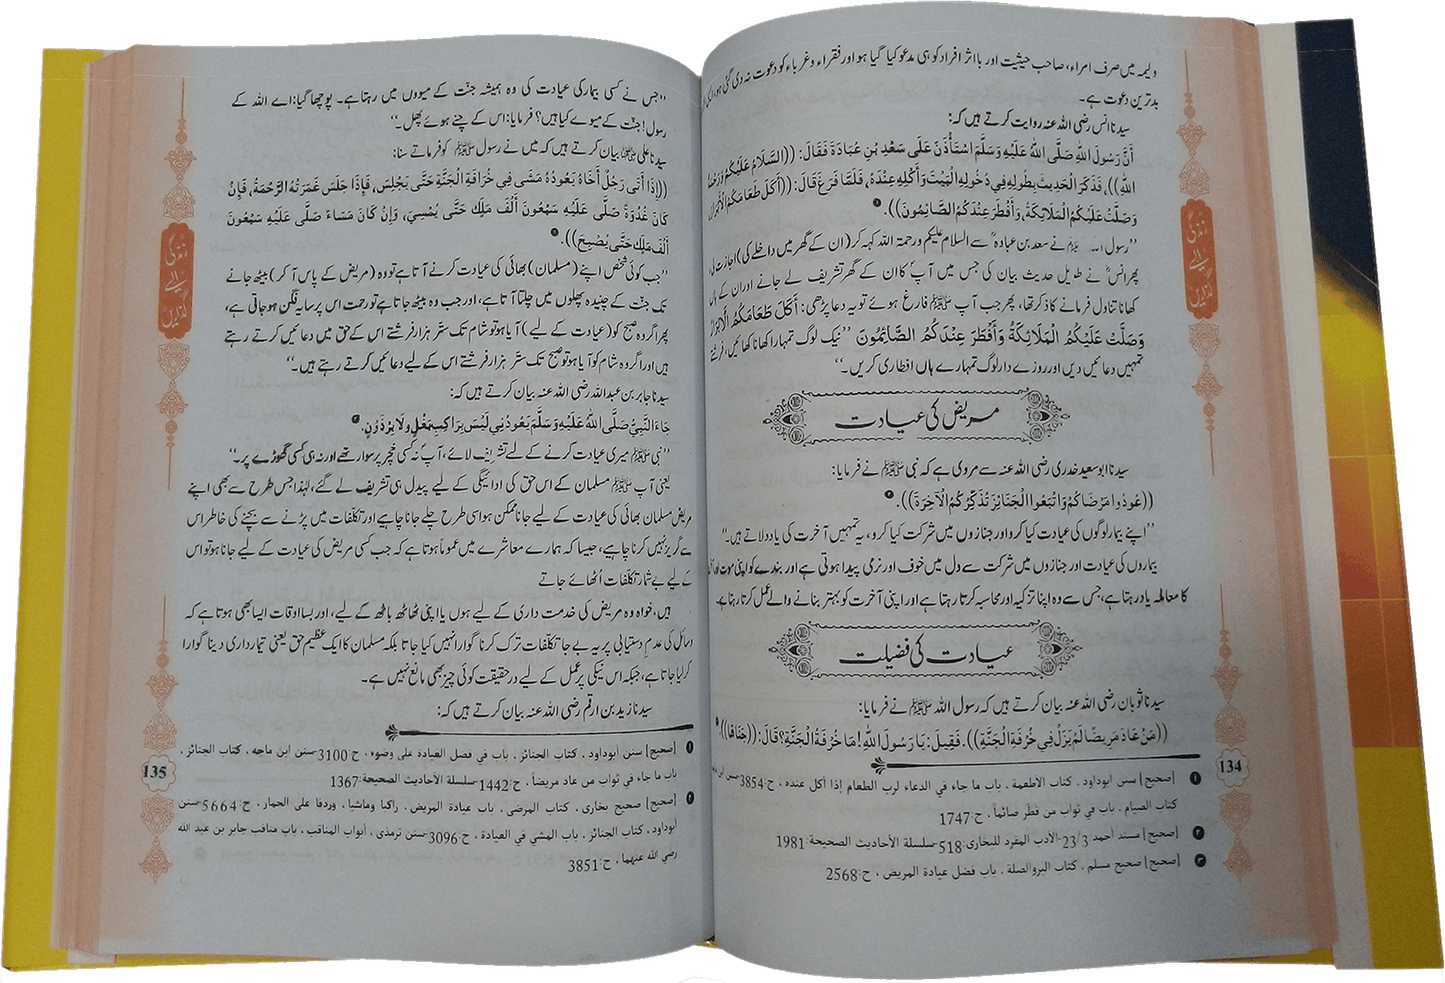 ولیمہ میں صرف امراء، صاحب حیثیت اور بااثر افراد کو ہی مدعو کیا گیا ہو اور فقراء و غرباء کو دعوت نہ دی گئی ہو،
بدترین دعوت ہے۔
سیدنا انس رضی اللہ عنہ روایت کرتے ہیں کہ:
أَنَّ رَسُولَ اللهِ صَلَّى اللهُ عَلَيْهِ وَسَلَّمَ اسْتَأْذَنَ عَلَى سَعْدِ بْنِ عُبَادَةَ فَقَالَ: ((السَّلَامُ عَلَيْكُمْ وَرَحْمَةُ
اللهِ))، فَذَكَرَ الْحَدِيثَ بِطُولِهِ فِي دُخُولِهِ الْبَيْتَ وَأَكْلِهِ عِنْدَهُ، فَلَمَّا فَرَغَ قَالَ: ((أَكَلَ طَعَامَكُمُ الْأَبْرَارُ،
وَصَلَّتْ عَلَيْكُمُ الْمَلَائِكَةُ، وَأَفْطَرَ عِنْدَكُمُ الصَّائِمُونَ))۔ ❶
’’رسول اللہ ﷺ نے سعد بن عبادہ ؓ سے السلام علیکم ورحمۃ اللہ کہہ کر (ان کے گھر میں داخلے کی) اجازت لی،
پھر انس ؓ نے طویل حدیث بیان کی جس میں آپ ؐ کا ان کے گھر تشریف لے جانے اور ان کے ہاں
کھانا تناول فرمانے کا ذکر تھا، پھر جب آپ ﷺ فارغ ہوئے تو یہ دعا پڑھی: أَكَلَ طَعَامَكُمُ الْأَبْرَارُ
وَصَلَّتْ عَلَيْكُمُ الْمَلَائِكَةُ وَأَفْطَرَ عِنْدَكُمُ الصَّائِمُونَ ’’نیک لوگ تمہارا کھانا کھائیں، فرشتے
تمہیں دعائیں دیں اور روزے دار لوگ تمہارے ہاں افطاری کریں۔‘‘
مریض کی عیادت
سیدنا ابوسعید خدری رضی اللہ عنہ سے مروی ہے کہ نبی ﷺ نے فرمایا:
((عُودُوا مَرْضَاكُمْ وَاتَّبِعُوا الْجَنَائِزَ تُذَكِّرُكُمُ الْآخِرَةَ))۔ ❷
’’اپنے بیمار لوگوں کی عیادت کیا کرو اور جنازوں میں شرکت کیا کرو، یہ تمہیں آخرت کی یاد دلاتے ہیں۔‘‘
بیماروں کی عیادت اور جنازوں میں شرکت سے دل میں خوف اور نرمی پیدا ہوتی ہے اور بندے کو اپنی موت اور
کا معاملہ یاد رہتا ہے، جس سے وہ اپنا تزکیہ اور محاسبہ کرتا رہتا ہے اور اپنی آخرت کو بہتر بنانے والے عمل کرتا رہتا ہے۔
عیادت کی فضیلت
سیدنا ثوبان رضی اللہ عنہ بیان کرتے ہیں کہ رسول اللہ ﷺ نے فرمایا:
((مَنْ عَادَ مَرِيضًا لَمْ يَزَلْ فِي خُرْفَةِ الْجَنَّةِ))۔ فَقِيلَ: يَا رَسُولَ اللهِ! مَا خُرْفَةُ الْجَنَّةِ؟ قَالَ: ((جَنَاهَا))۔ ❸
❶ [صحيح] سنن ابوداود، كتاب الاطعمة، باب ما جاء في الدعاء لرب الطعام إذا أكل عنده، ح:3854-سنن ابن ماجه
كتاب الصيام، باب في ثواب من فطّر صائماً، ح:1747
❷ [صحيح] مسند أحمد:23/3-الأدب المفرد للبخارى:518-سلسلة الأحاديث الصحيحة:1981
❸ [صحيح] صحيح مسلم، كتاب البر والصلة، باب فضل عيادة المريض، ح:2568
134
زندگی ایسے گزاریں
’’جس نے کسی بیمار کی عیادت کی وہ ہمیشہ جنّت کے میووں میں رہتا ہے۔ پوچھا گیا: اے اللہ کے
رسول! جنّت کے میوے کیا ہیں؟ فرمایا: اس کے چنے ہوئے پھل۔‘‘
سیدنا علی ؓ بیان کرتے ہیں کہ میں نے رسول ﷺ کو فرماتے سنا:
((إِذَا أَتَى رَجُلٌ أَخَاهُ يَعُودُهُ مَشَى فِي خُرَافَةِ الْجَنَّةِ حَتَّى يَجْلِسَ، فَإِذَا جَلَسَ غَمَرَتْهُ الرَّحْمَةُ، فَإِنْ
كَانَ غُدْوَةً صَلَّى عَلَيْهِ سَبْعُونَ أَلْفَ مَلَكٍ حَتَّى يُمْسِيَ، وَإِنْ كَانَ مَسَاءً صَلَّى عَلَيْهِ سَبْعُونَ
أَلْفَ مَلَكٍ حَتَّى يُصْبِحَ))۔ ❶
’’جب کوئی شخص اپنے (مسلمان) بھائی کی عیادت کرنے آتا ہے تو وہ (مریض کے پاس آ کر) بیٹھ جانے
تک جنّت کے چنیدہ پھلوں میں چلتا آتا ہے، اور جب وہ بیٹھ جاتا ہے تو رحمت اس پر سایہ فگن ہو جاتی ہے،
پھر اگر وہ صبح کو (عیادت کے لیے) آیا ہو تو شام تک ستّر ہزار فرشتے اس کے حق میں دعائیں کرتے رہتے
ہیں اور اگر وہ شام کو آیا ہو تو صبح تک ستّر ہزار فرشتے اس کے لیے دعائیں کرتے رہتے ہیں۔‘‘
سیدنا جابر بن عبداللہ رضی اللہ عنہ بیان کرتے ہیں کہ:
جَاءَ النَّبِيُّ صَلَّى اللهُ عَلَيْهِ وَسَلَّمَ يَعُودُنِي لَيْسَ بِرَاكِبِ بَغْلٍ وَلَا بِرْذَوْنٍ۔ ❷
’’نبی ﷺ میری عیادت کرنے کے لئے تشریف لائے، آپ ؐ نہ کسی خچر پر سوار تھے اور نہ ہی کسی گھوڑے پر۔‘‘
یعنی آپ ﷺ مسلمان کے اس حق کی ادائیگی کے لیے پیدل ہی تشریف لے گئے، لہٰذا جس طرح سے بھی اپنے
مریض مسلمان بھائی کی عیادت کے لیے جانا ممکن ہو اسی طرح چلے جانا چاہیے اور تکلّفات میں پڑنے سے بچنے کی خاطر اس
سے گریز نہیں کرنا چاہیے، جیسا کہ ہمارے معاشرے میں عموماً ہوتا ہے کہ جب کسی مریض کی عیادت کے لیے جانا ہو تو اس
کے لیے بے شمار تکلّفات اُٹھائے جاتے
ہیں، خواہ وہ مریض کی خدمت داری کے لیے ہوں یا اپنی ٹھاٹھ باٹھ کے لیے، اور بسا اوقات ایسا بھی ہوتا ہے کہ
وسائل کی عدم دستیابی پر یہ بے جا تکلّفات ترک کرنا گوارا نہیں کیا جاتا بلکہ مسلمان کا ایک عظیم حق یعنی تیمارداری دینا گوارا
کر لیا جاتا ہے، جبکہ اس نیکی پر عمل کے لیے درحقیقت کوئی چیز بھی مانع نہیں ہے۔
سیدنا زید بن ارقم رضی اللہ عنہ بیان کرتے ہیں کہ:
❶ [صحيح] سنن ابوداود، كتاب الجنائز، باب في فضل العيادة على وضوء، ح:3100-سنن ابن ماجه، كتاب الجنائز،
باب ما جاء في ثواب من عاد مريضاً، ح:1442-سلسلة الأحاديث الصحيحة:1367
❷ [صحيح] صحيح بخارى، كتاب المرضى، باب عيادة المريض، راكبا وماشيا، وردفا على الحمار، ح:5664-سنن
أبوداود، كتاب الجنائز، باب المشي في العيادة، ح:3096-سنن ترمذى، أبواب المناقب، باب مناقب جابر بن عبد الله
رضي الله عنهما، ح:3851
135
زندگی ایسے گزاریں